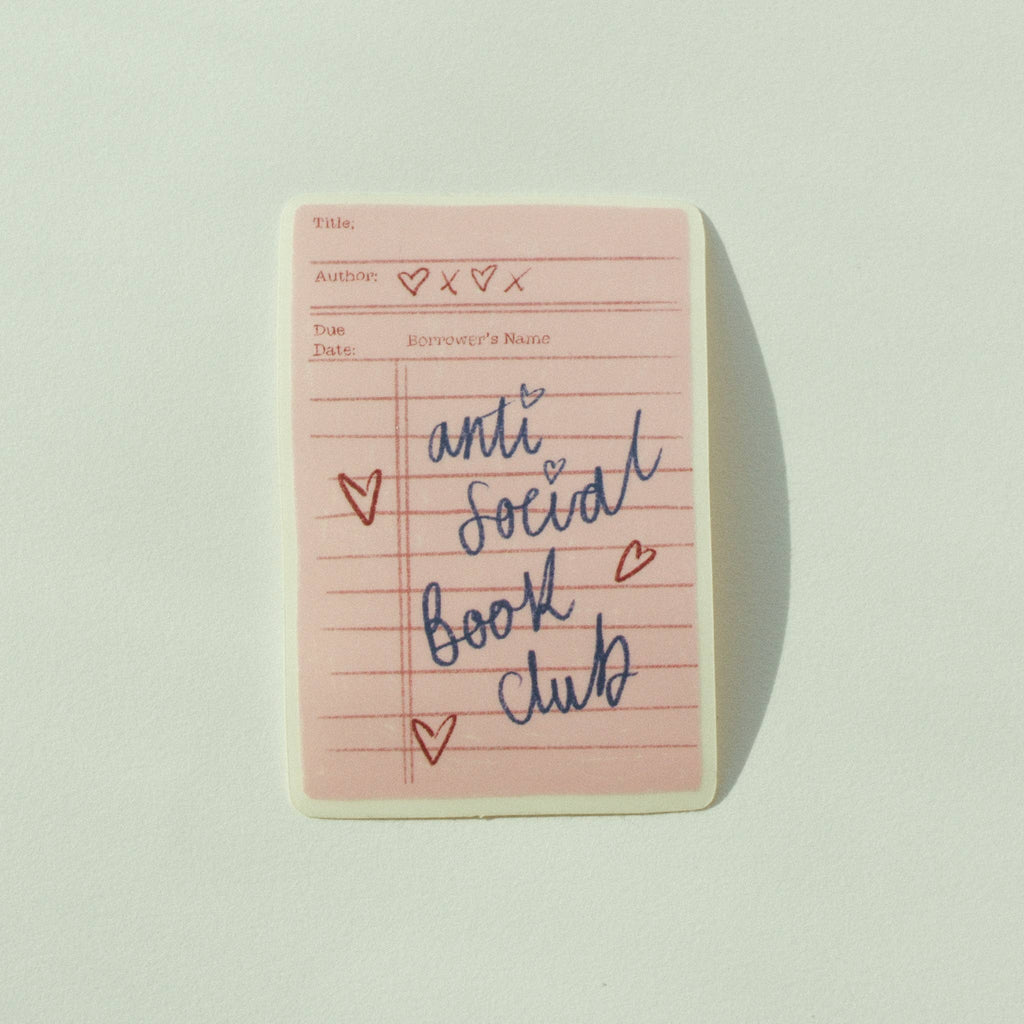 Title:
Author: ♡ X ♡ X
Due
Date:
Borrower's Name
anti
social
Book
club